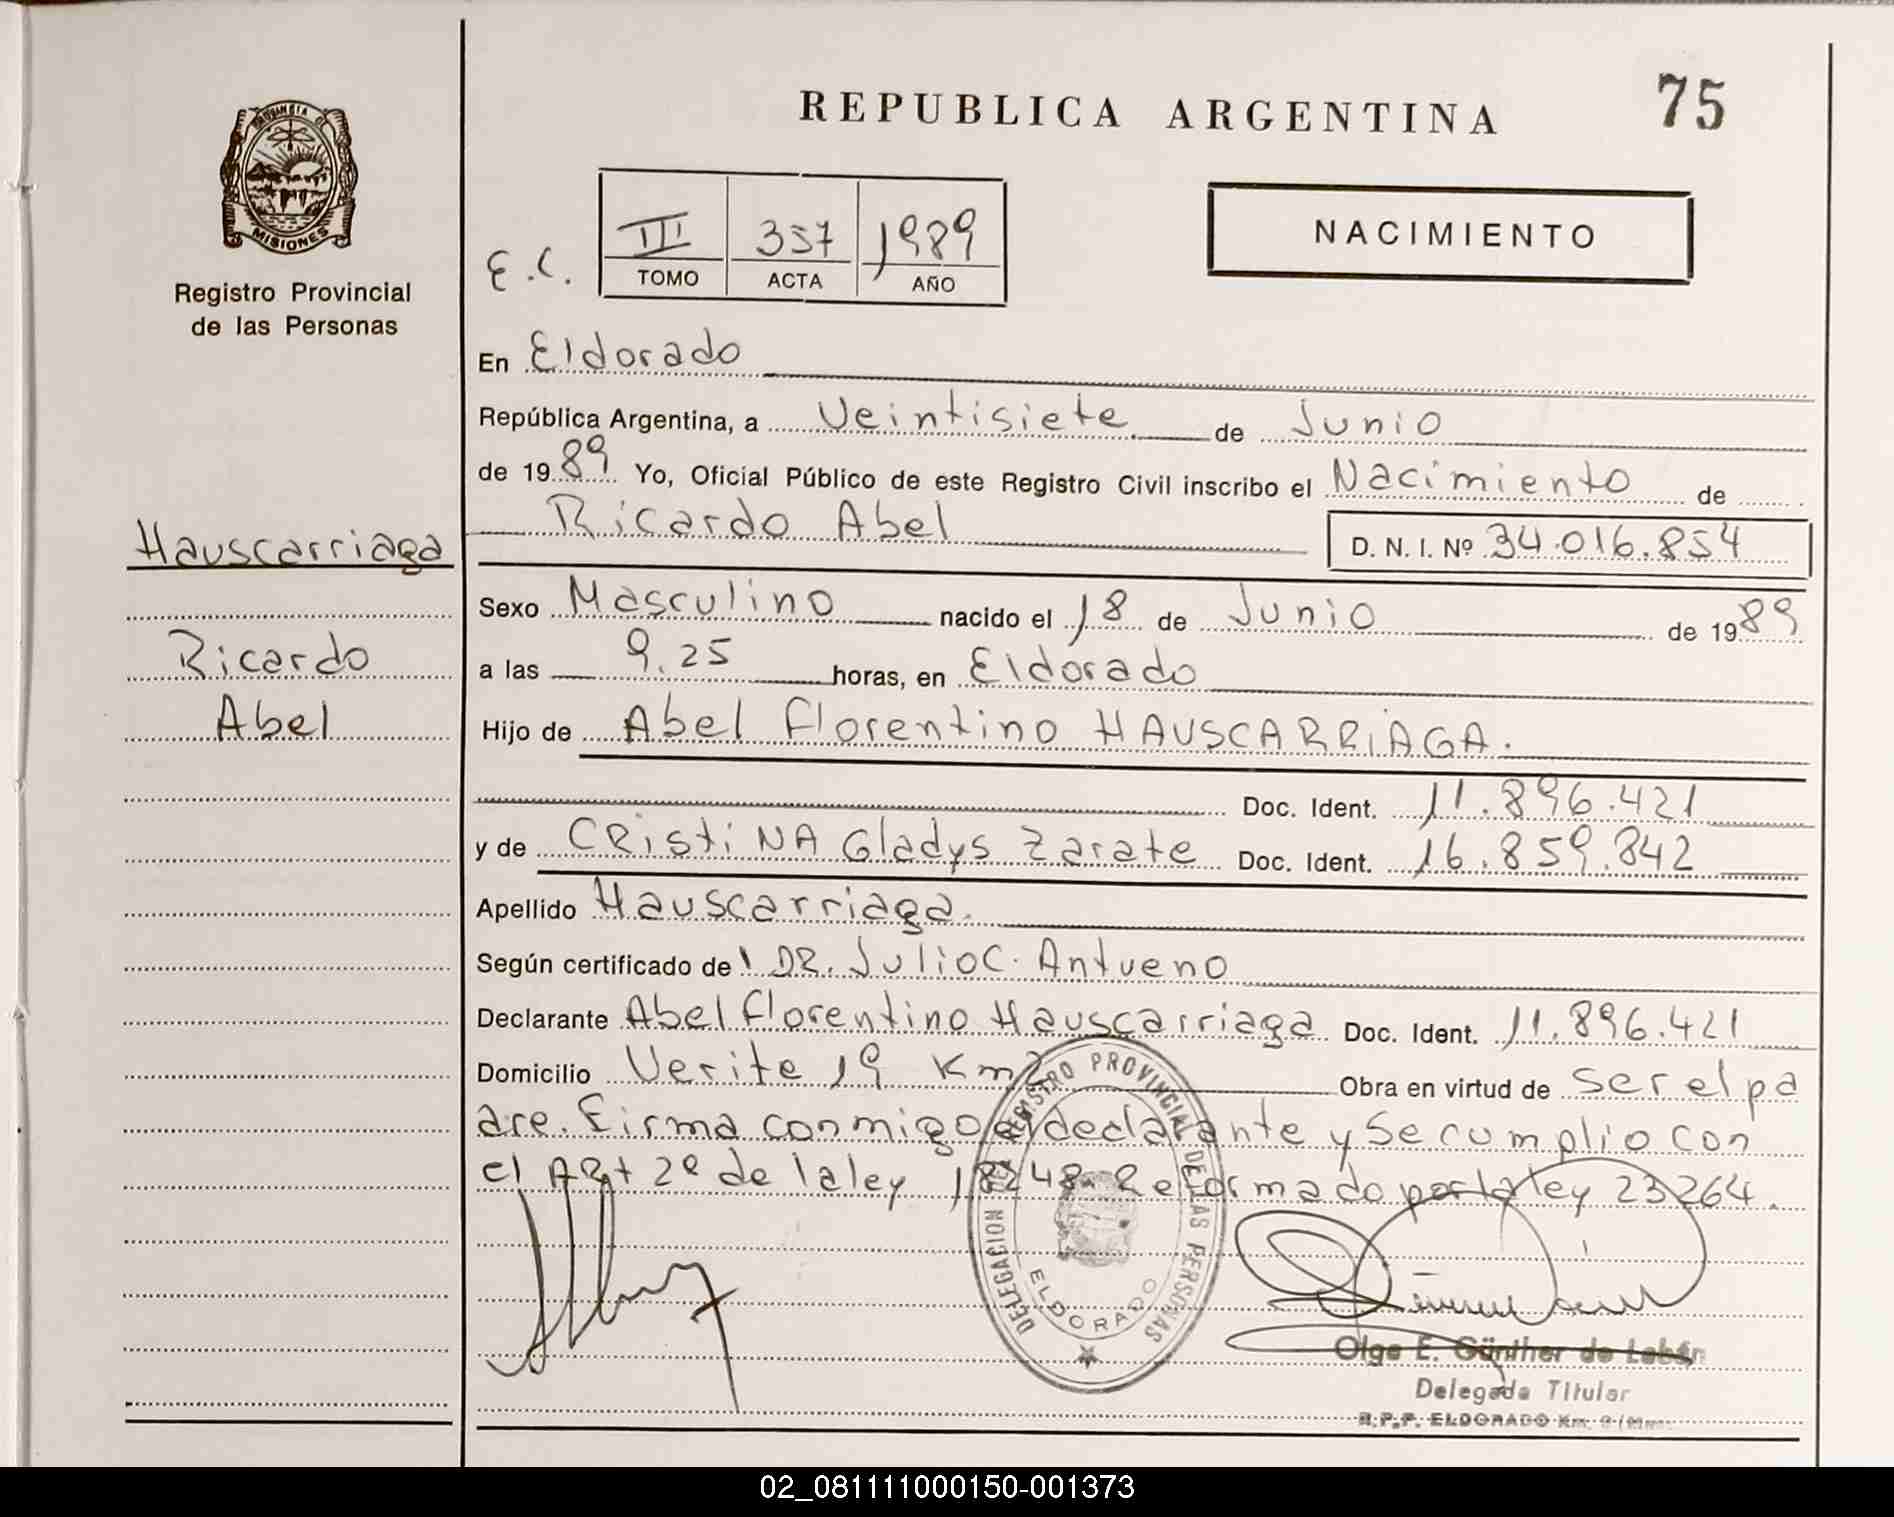 REPUBLICA ARGENTINA
75
PROVINCIA DE
MISIONES
Registro Provincial
de las Personas
E.C.
III 357 1989
TOMO ACTA AÑO
NACIMIENTO
En Eldorado
República Argentina, a Veintisiete de Junio
de 1989 Yo, Oficial Público de este Registro Civil inscribo el Nacimiento de
Ricardo Abel D. N. I. Nº 34.016.854
Hauscarriaga
Ricardo
Abel
Sexo Masculino nacido el 18 de Junio de 1989
a las 9.25 horas, en Eldorado
Hijo de Abel Florentino HAUSCARRIAGA.
Doc. Ident. 11.896.421
y de CRistiNA Gladys Zarate Doc. Ident. 16.859.842
Apellido Hauscarriaga.
Según certificado de DR. Julio C. Antueno
Declarante Abel Florentino Hauscarriaga Doc. Ident. 11.896.421
Domicilio Verite 19 Km 2 Obra en virtud de ser el pa
dre. Firma conmigo el declarante y se cumplio con
el ARt 2º de la ley 18248. Reformado por la ley 23264.
DELEGACION DEL REGISTRO PROVINCIAL DE LAS PERSONAS
ELDORADO
Olga E. Günther de
Delegada Titular
R.P.P. ELDORADO Km. 9
02_081111000150-001373